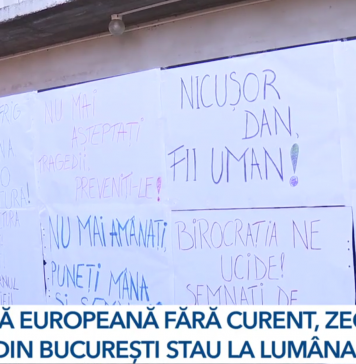 NU MAI
AȘTEPTAȚI
TRAGEDII.
PREVENIȚI-LE!
NICUȘOR
DAN,
FII UMAN!
NU MAI AMÂNAȚI
PUNEȚI MÂNA
BIROCRAȚIA NE
UCIDE!
SEMNAȚI DE
Ă EUROPEANĂ FĂRĂ CURENT, ZE
DIN BUCUREȘTI STAU LA LUMÂNA